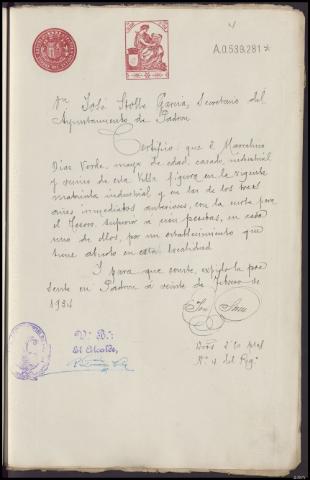 A.0.539,281*
Dn José Stolle García, Secretario del
Ayuntamiento de Padrón
Certifico: que D. Marcelino
Dias Verde, mayor de edad, casado, industrial
y vecino de esta Villa figura en la vigente
matrícula industrial y en las de los tres
años inmediatos anteriores, con la cuota para
el Tesoro, superior a cien pesetas, en cada
uno de ellos, por un establecimiento que
tiene abierto en esta localidad.
Y para que conste, expido la pre
sente en Padrón a veinte de Febrero de
1934
José
Vº Bº:
El Alcalde,
Dros 2 la ptas
Nº 4 del Regº